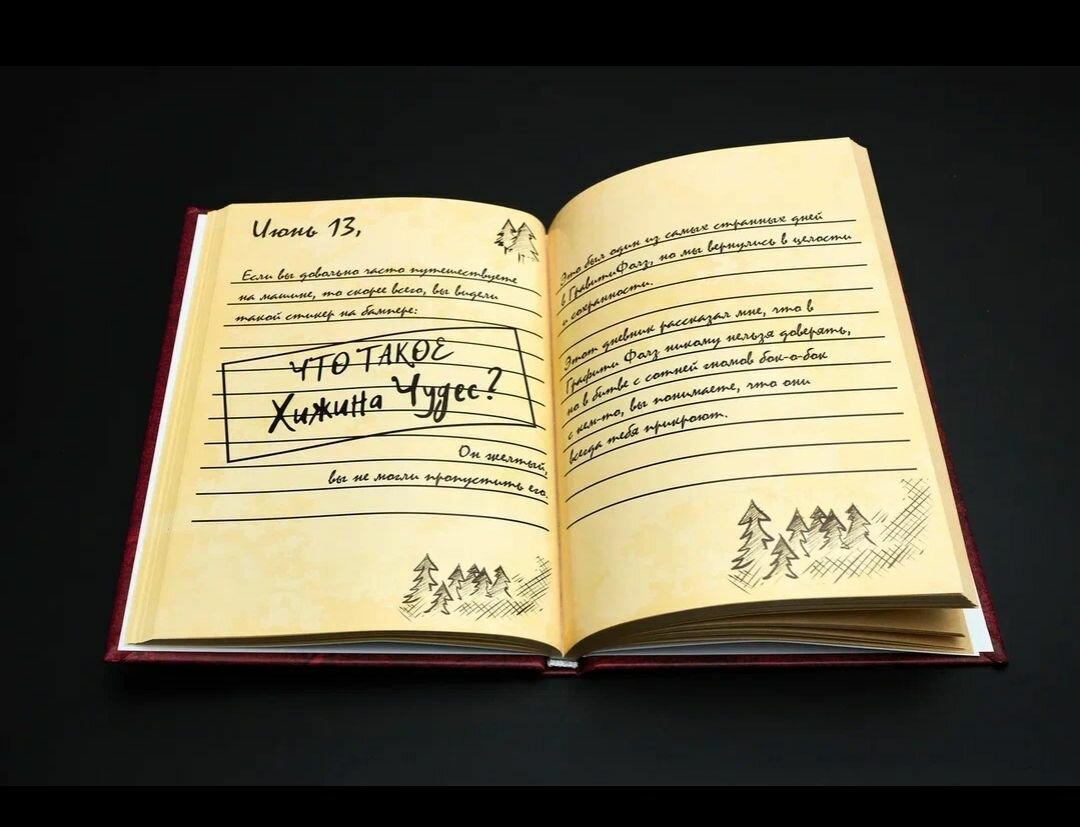 Июнь 13,
Если вы довольно часто путешествуете
на машине, то скорее всего, вы видели
такой стикер на бампере:
ЧТО ТАКОЕ
Хижина Чудес?
Он желтый,
вы не могли пропустить его.
Это был один из самых странных дней
в ГравитиФолз, но мы вернулись в целости
и сохранности.
Этот дневник рассказал мне, что в
Графити Фолз никому нельзя доверять,
но в битве с сотней гномов бок-о-бок
с кем-то, вы понимаете, что они
всегда тебя прикроют.